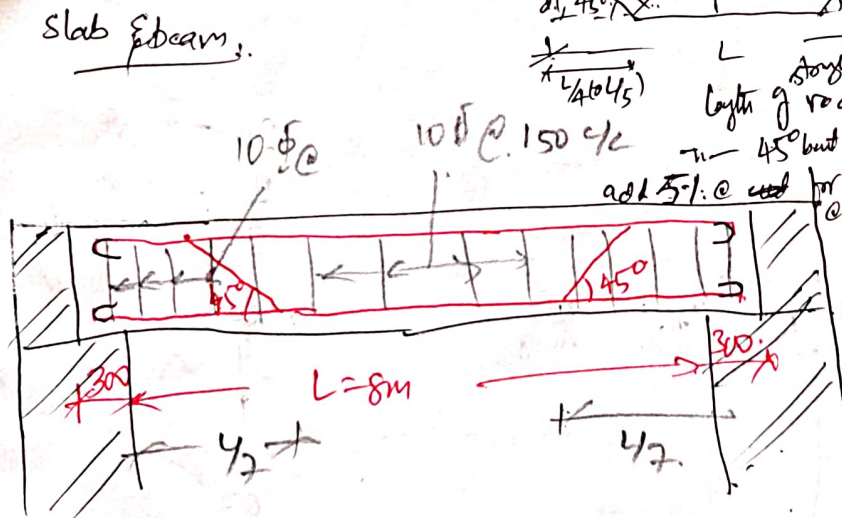 Slab & beam.
45°
L
L/4 to L/5)
length of
45° bent
add 5%. @
10 Φ @
10 Φ @ 150 c/c
45°
45°
300
L = 8m
300.
L/7
L/7.